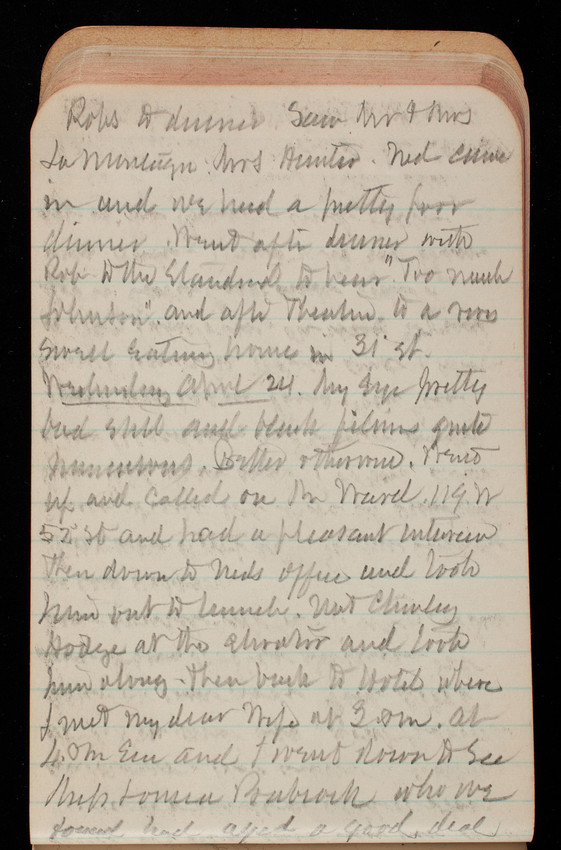 Robs to dinner Saw Mr & Mrs
La Montagu. Mrs Hunter. Ned came
in and we had a pretty poor
dinner. Went after dinner with
Rob to the Standard to hear "Too much
Johnson". and after Theatre to a
Swell Eating house in 31 st.
Wednesday April 24. My Eye pretty
bad still and black films quite
numerous. Better otherwise. Went
up and called on Mr Ward. 119. W
52 St and had a pleasant interview
Then down to Neds office and took
him out to lunch. Met Charley
Hodge at the Elevator and took
him along. Then back to Hotel where
I met my dear Wife at 3. At
4. Em and I went down to See
Miss Louisa Babcock who we
found had aged a good deal